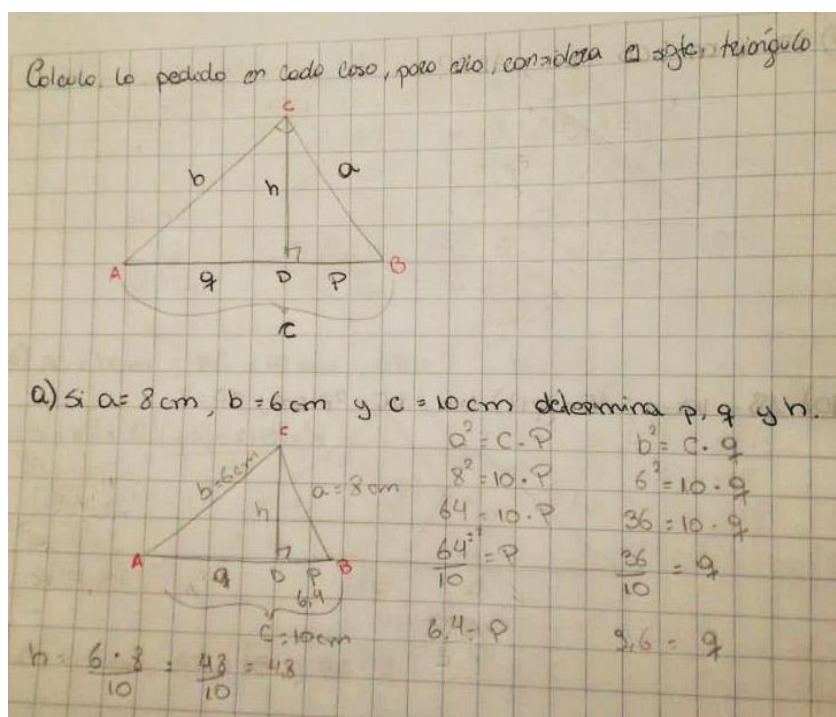 Calculo lo pedido en cada caso, para ello, considera el sgte. triángulo
C
b
h
a
A
q
D
P
B
C
a) Si a = 8 cm, b = 6 cm y c = 10 cm determina p, q y h.
C
b = 6 cm
a = 8 cm
h
A
q
D
P
B
6,4
C = 10 cm
a² = c · P
8² = 10 · P
64 = 10 · P
64/10 = P
6,4 = P
b² = c · q
6² = 10 · q
36 = 10 · q
36/10 = q
3,6 = q
h = 6 · 8/10 = 48/10 = 48